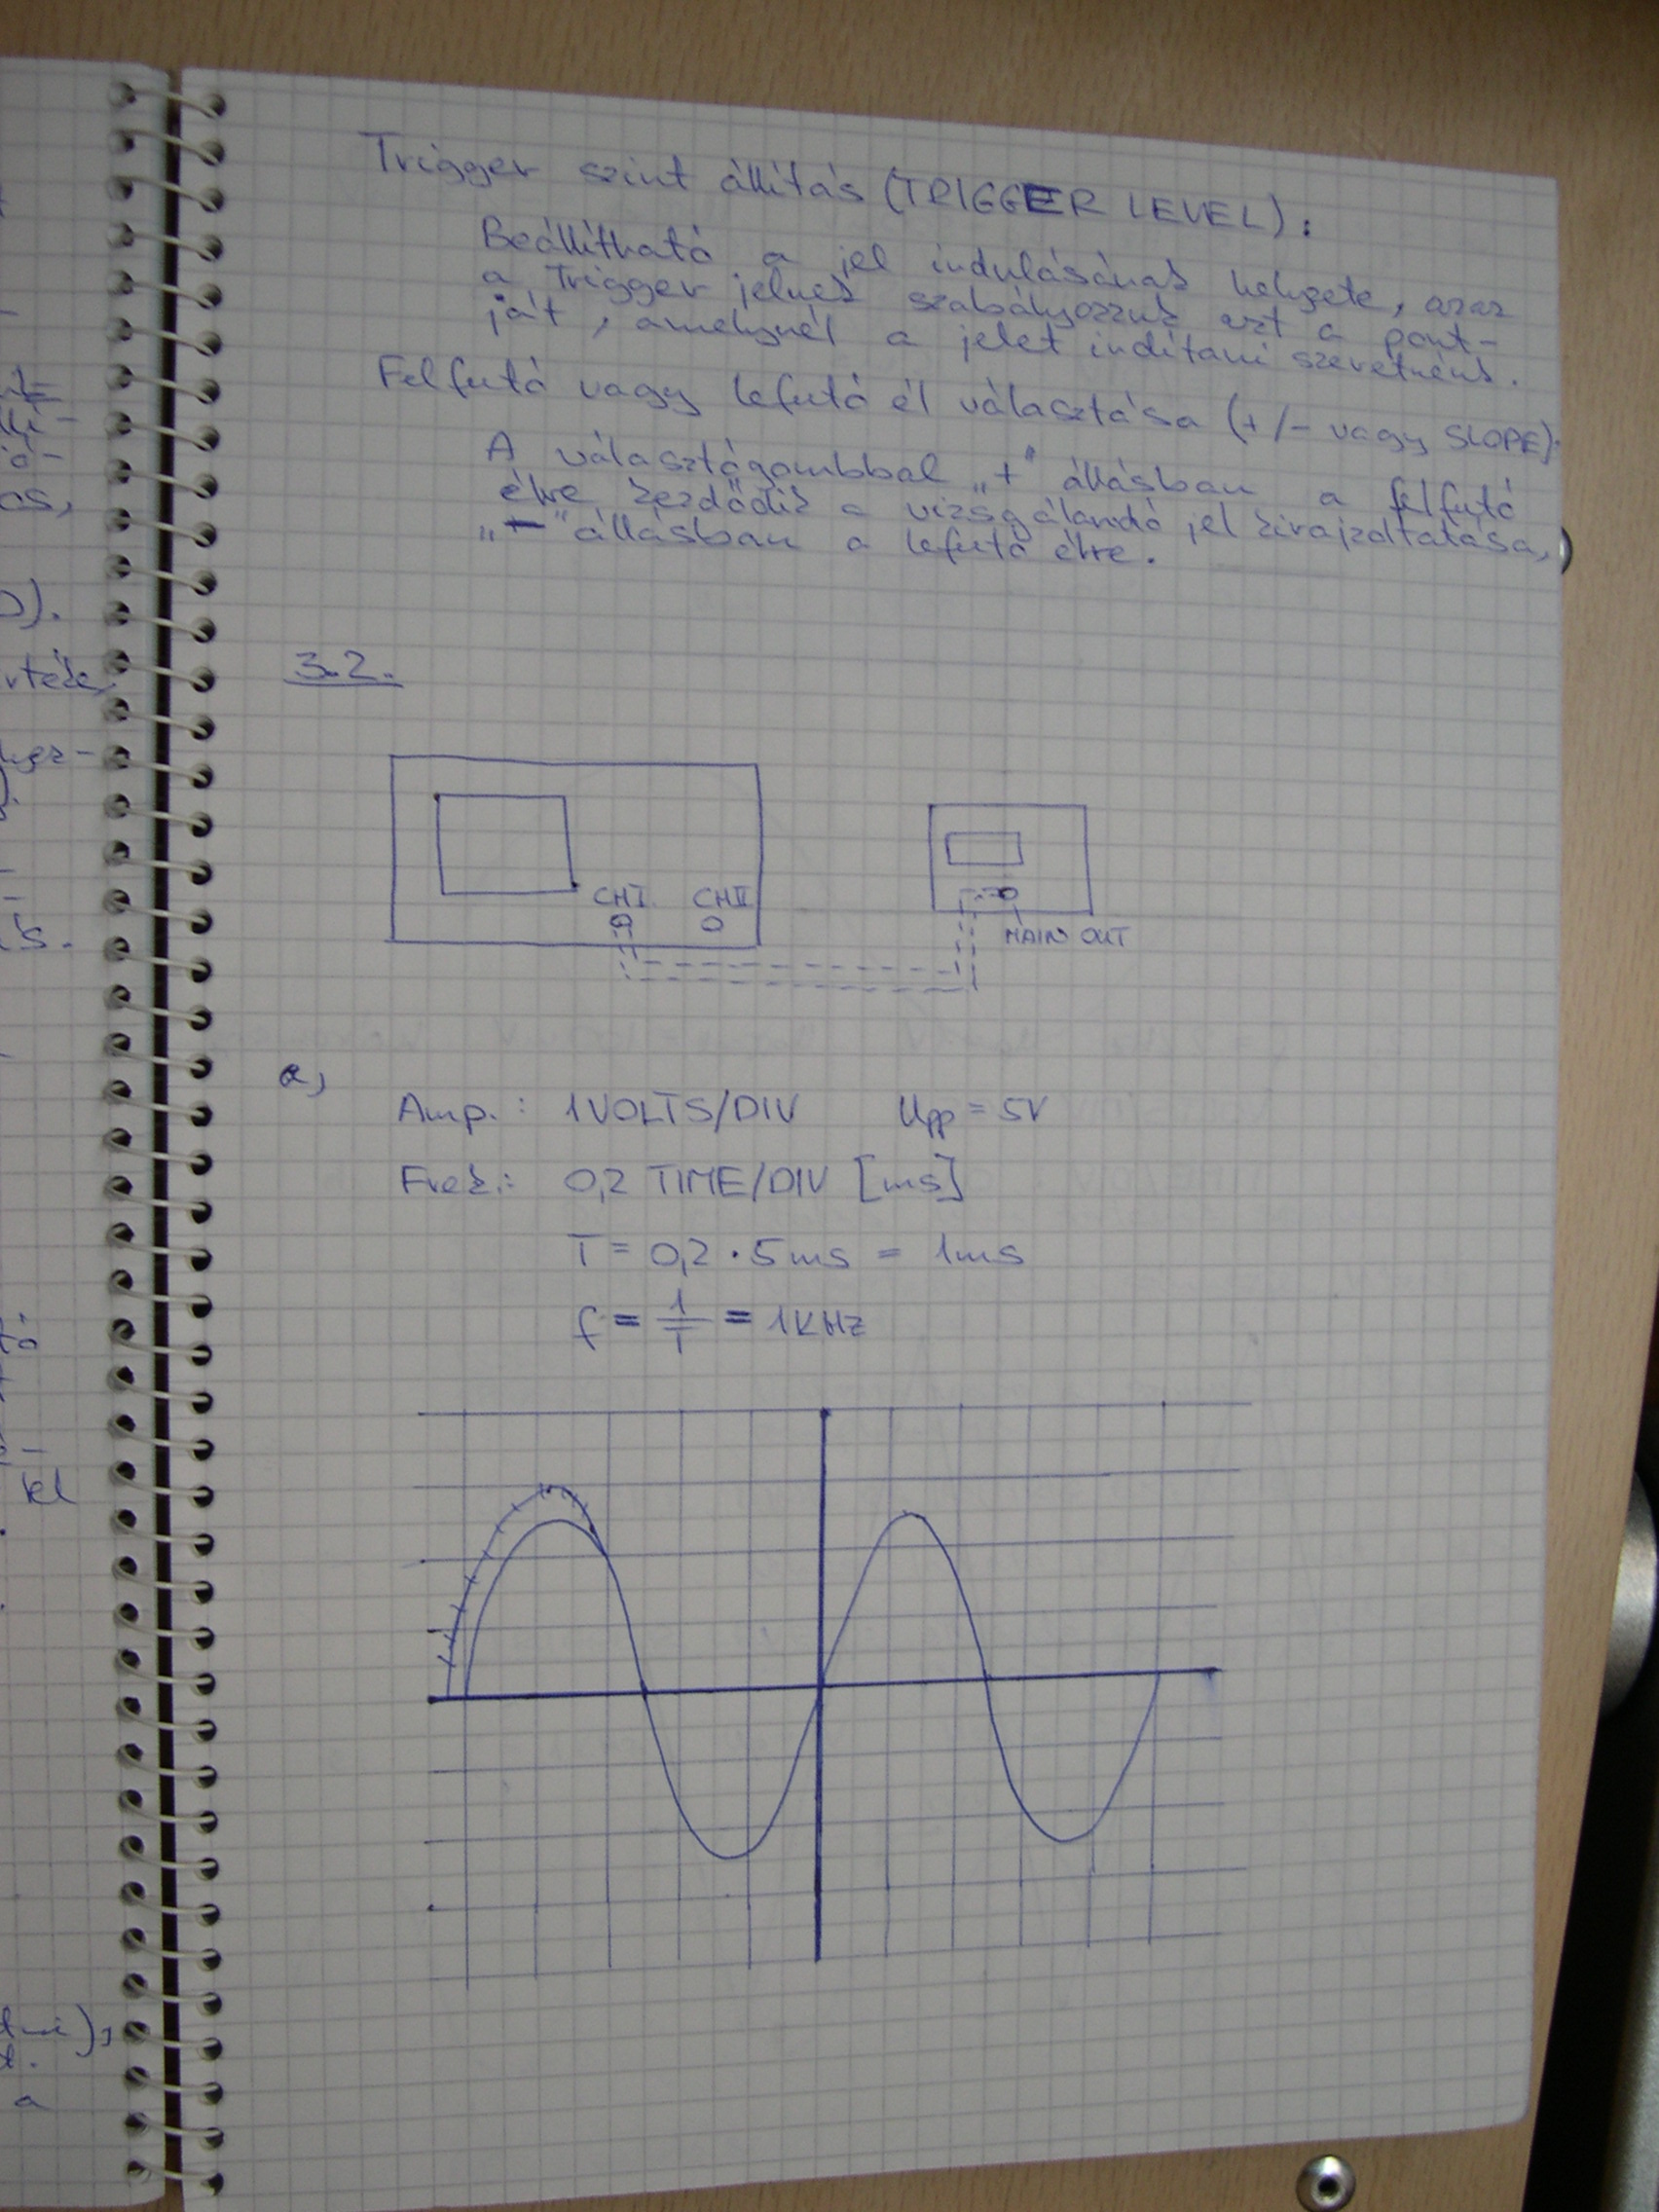 Trigger szint állítás (TRIGGER LEVEL):
Beállítható a jel indulásának helyzete, azaz
a Trigger jelnek szabályozzuk azt a pont-
ját, amelynél a jelet indítani szeretnénk.
Felfutó vagy lefutó él választása (+/- vagy SLOPE).
A választógombbal „+" állásban a felfutó
élre kezdődik a vizsgálandó jel kirajzoltatása,
„-" állásban a lefutó élre.
3.2.
CH I CH II
MAIN OUT
a,
Amp.: 1VOLTS/DIV Upp = 5V
Frek.: 0,2 TIME/DIV [ms]
T = 0,2 · 5ms = 1ms
f = 1/T = 1KHz
os,
).
kel
a